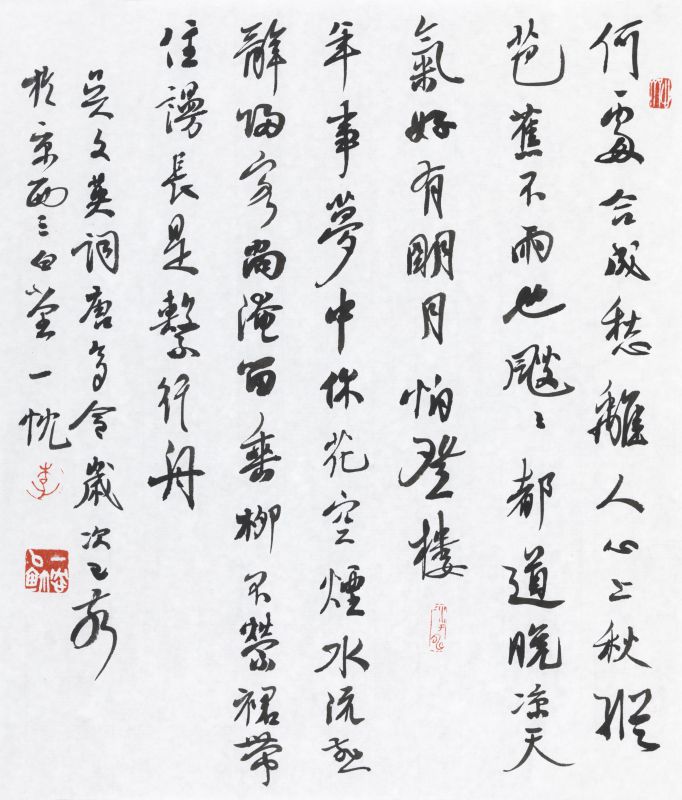 何處合成愁離人心上秋縱
芭蕉不雨也颼〻都道晚涼天
氣好有明月怕登樓
年事夢中休花空煙水流燕
辭歸客尚淹留垂柳不縈裙帶
住謾長是繫行舟
吳文英詞唐多令歲次己亥
於京西三白堂一忱
李